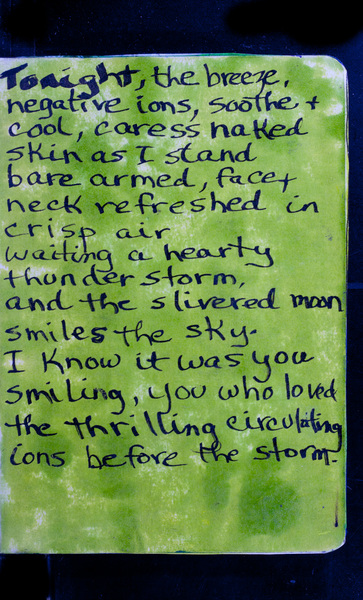 Tonight, the breeze,
negative ions, soothe +
cool, caress naked
skin as I stand
bare armed, face +
neck refreshed in
crisp air
waiting a hearty
thunder storm,
and the slivered moon
smiles the sky.
I know it was you
smiling, you who loved
the thrilling circulating
ions before the storm.